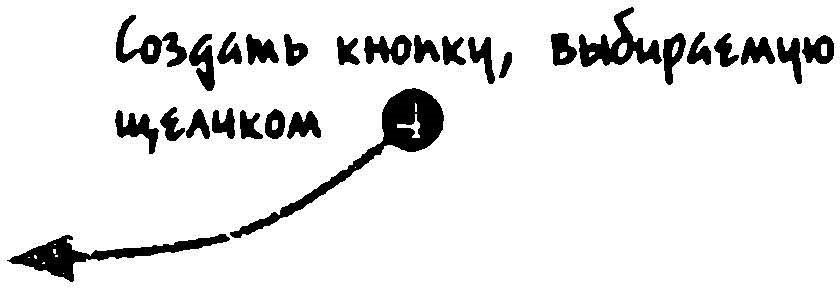 Создать кнопку, выбираемую
щелчком 4